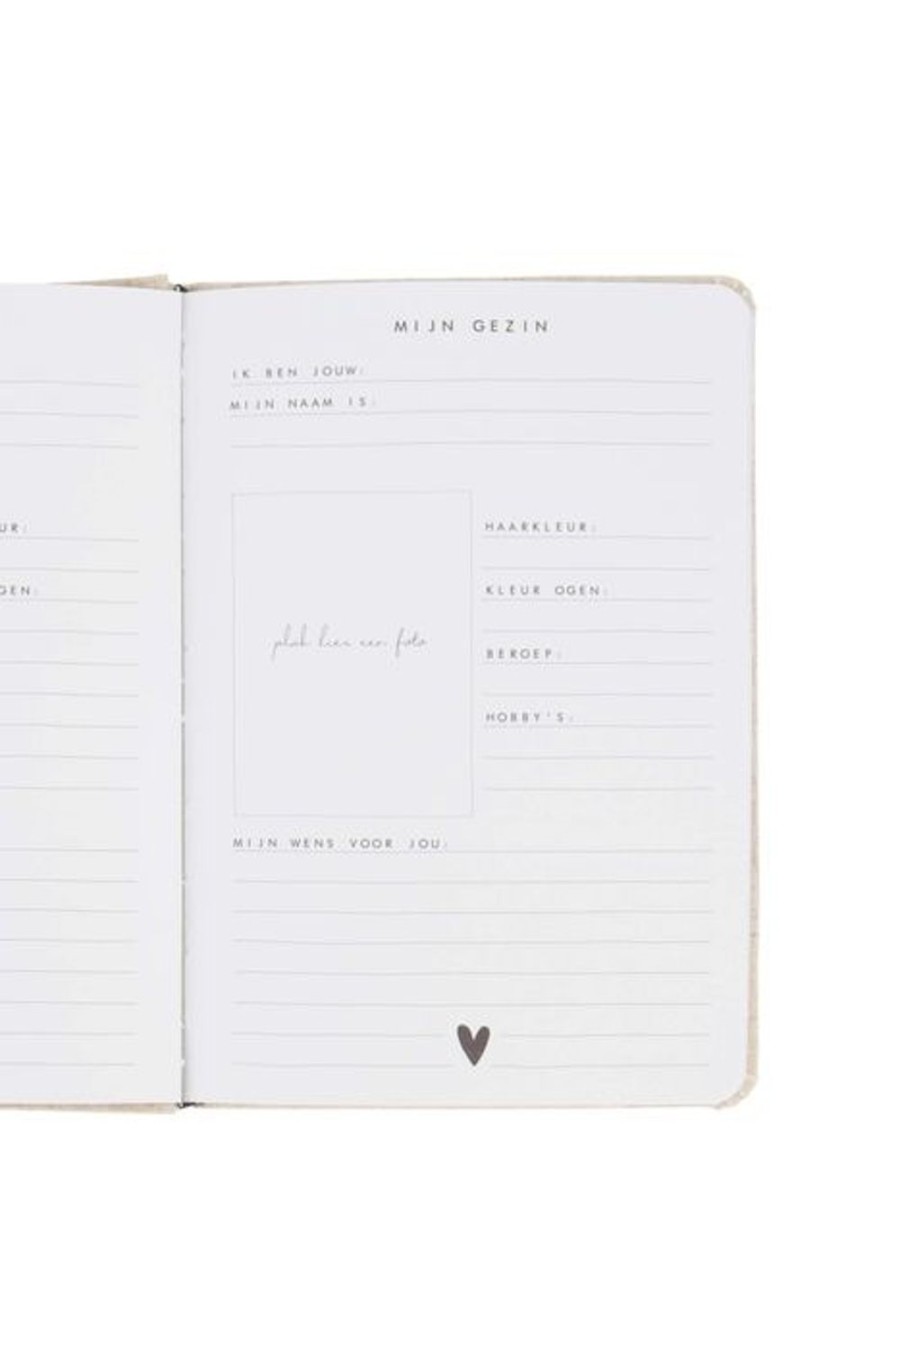 MIJN GEZIN
IK BEN JOUW:
MIJN NAAM IS:
UR:
GEN:
plak hier een foto
HAARKLEUR:
KLEUR OGEN:
BEROEP:
HOBBY'S:
MIJN WENS VOOR JOU: